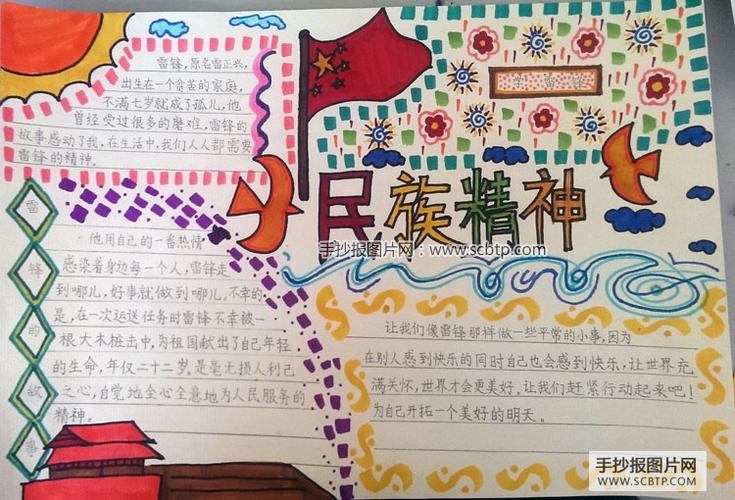 雷锋,原名雷正兴,
出生在一个贫苦的家庭,
不满七岁就成了孤儿,他
曾经受过很多的磨难,雷锋的
故事感动了我,在生活中,我们人人都需要
雷锋的精神。
学雷锋
民族精神
手抄报图片网:www.scbtp.com
雷
锋
的
故
事
他用自己的一番热情
感染着身边每一个人,雷锋走
到哪儿,好事就做到哪儿,不幸的
是,在一次运送任务时雷锋不幸被一
根大木桩击中,为祖国献出了自己年轻
的生命,年仅二十二岁。是毫无损人利己
之心,自觉地全心全意地为人民服务的
精神。
让我们像雷锋那样做一些平常的小事,因为
在别人感到快乐的同时自己也会感到快乐,让世界充
满关怀,世界才会更美好。让我们赶紧行动起来吧!
为自己开拓一个美好的明天。
手抄报图片网
WWW.SCBTP.COM